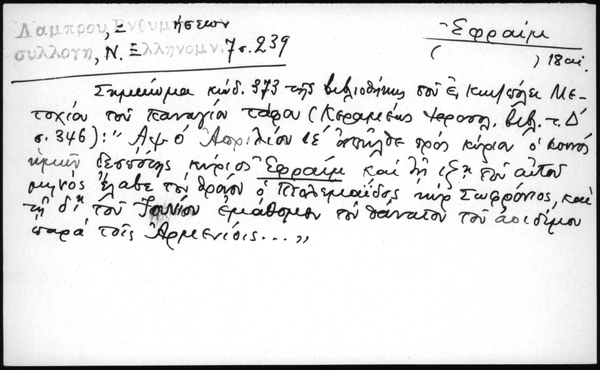 Λάμπρου, Ἐνθυμήσεων
συλλογή, Ν. Ἑλληνομν. 7 σ. 239
Ἐφραίμ
( ) 18 αἰ.
Σημείωμα κώδ. 373 τῆς βιβλιοθήκης τοῦ ἐν Κων/πόλει Με-
τοχίου τοῦ παναγίου τάφου (Κεραμέως Ἱεροσολ. βιβλ. τ. Δ΄
σ. 346): "Αψ ὁ Ἀπριλίου ιε΄ ἀπῆλθε πρὸς κύριον ὁ κοινὸς
ἡμῶν δεσπότης κύριος Ἐφραίμ καὶ τῇ ιζῃ τοῦ αὐτοῦ
μηνὸς ἔλαβε τὸν θρόνον ὁ Πτολεμαΐδος κὺρ Σωφρόνιος, καὶ
τῇ δῃ τοῦ Ἰουνίου ἐμάθομεν τὸν θάνατον τοῦ ἀοιδίμου
παρὰ τοῖς Ἀρμενίοις...„